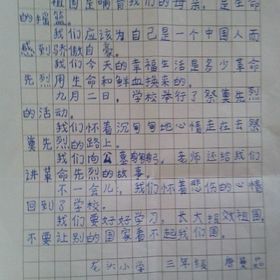 祖国是哺育我们的母亲，是生命
的摇篮。
我们应该为自己是一个中国人而
感到骄傲自豪。
我们今天的幸福生活是多少革命
先烈用生命和鲜血换来的。
九月二日，学校举行了祭奠先烈
的活动。
我们怀着沉甸甸地心情走在去祭
奠先烈的路上。
我们向 老师还给我们
讲革命先烈的故事。
不一会儿，我们怀着悲伤的心情
回到了学校。
我们要好好学习，长大报效祖国，
不要让别的国家看不起我们国。
龙头小学 三年级